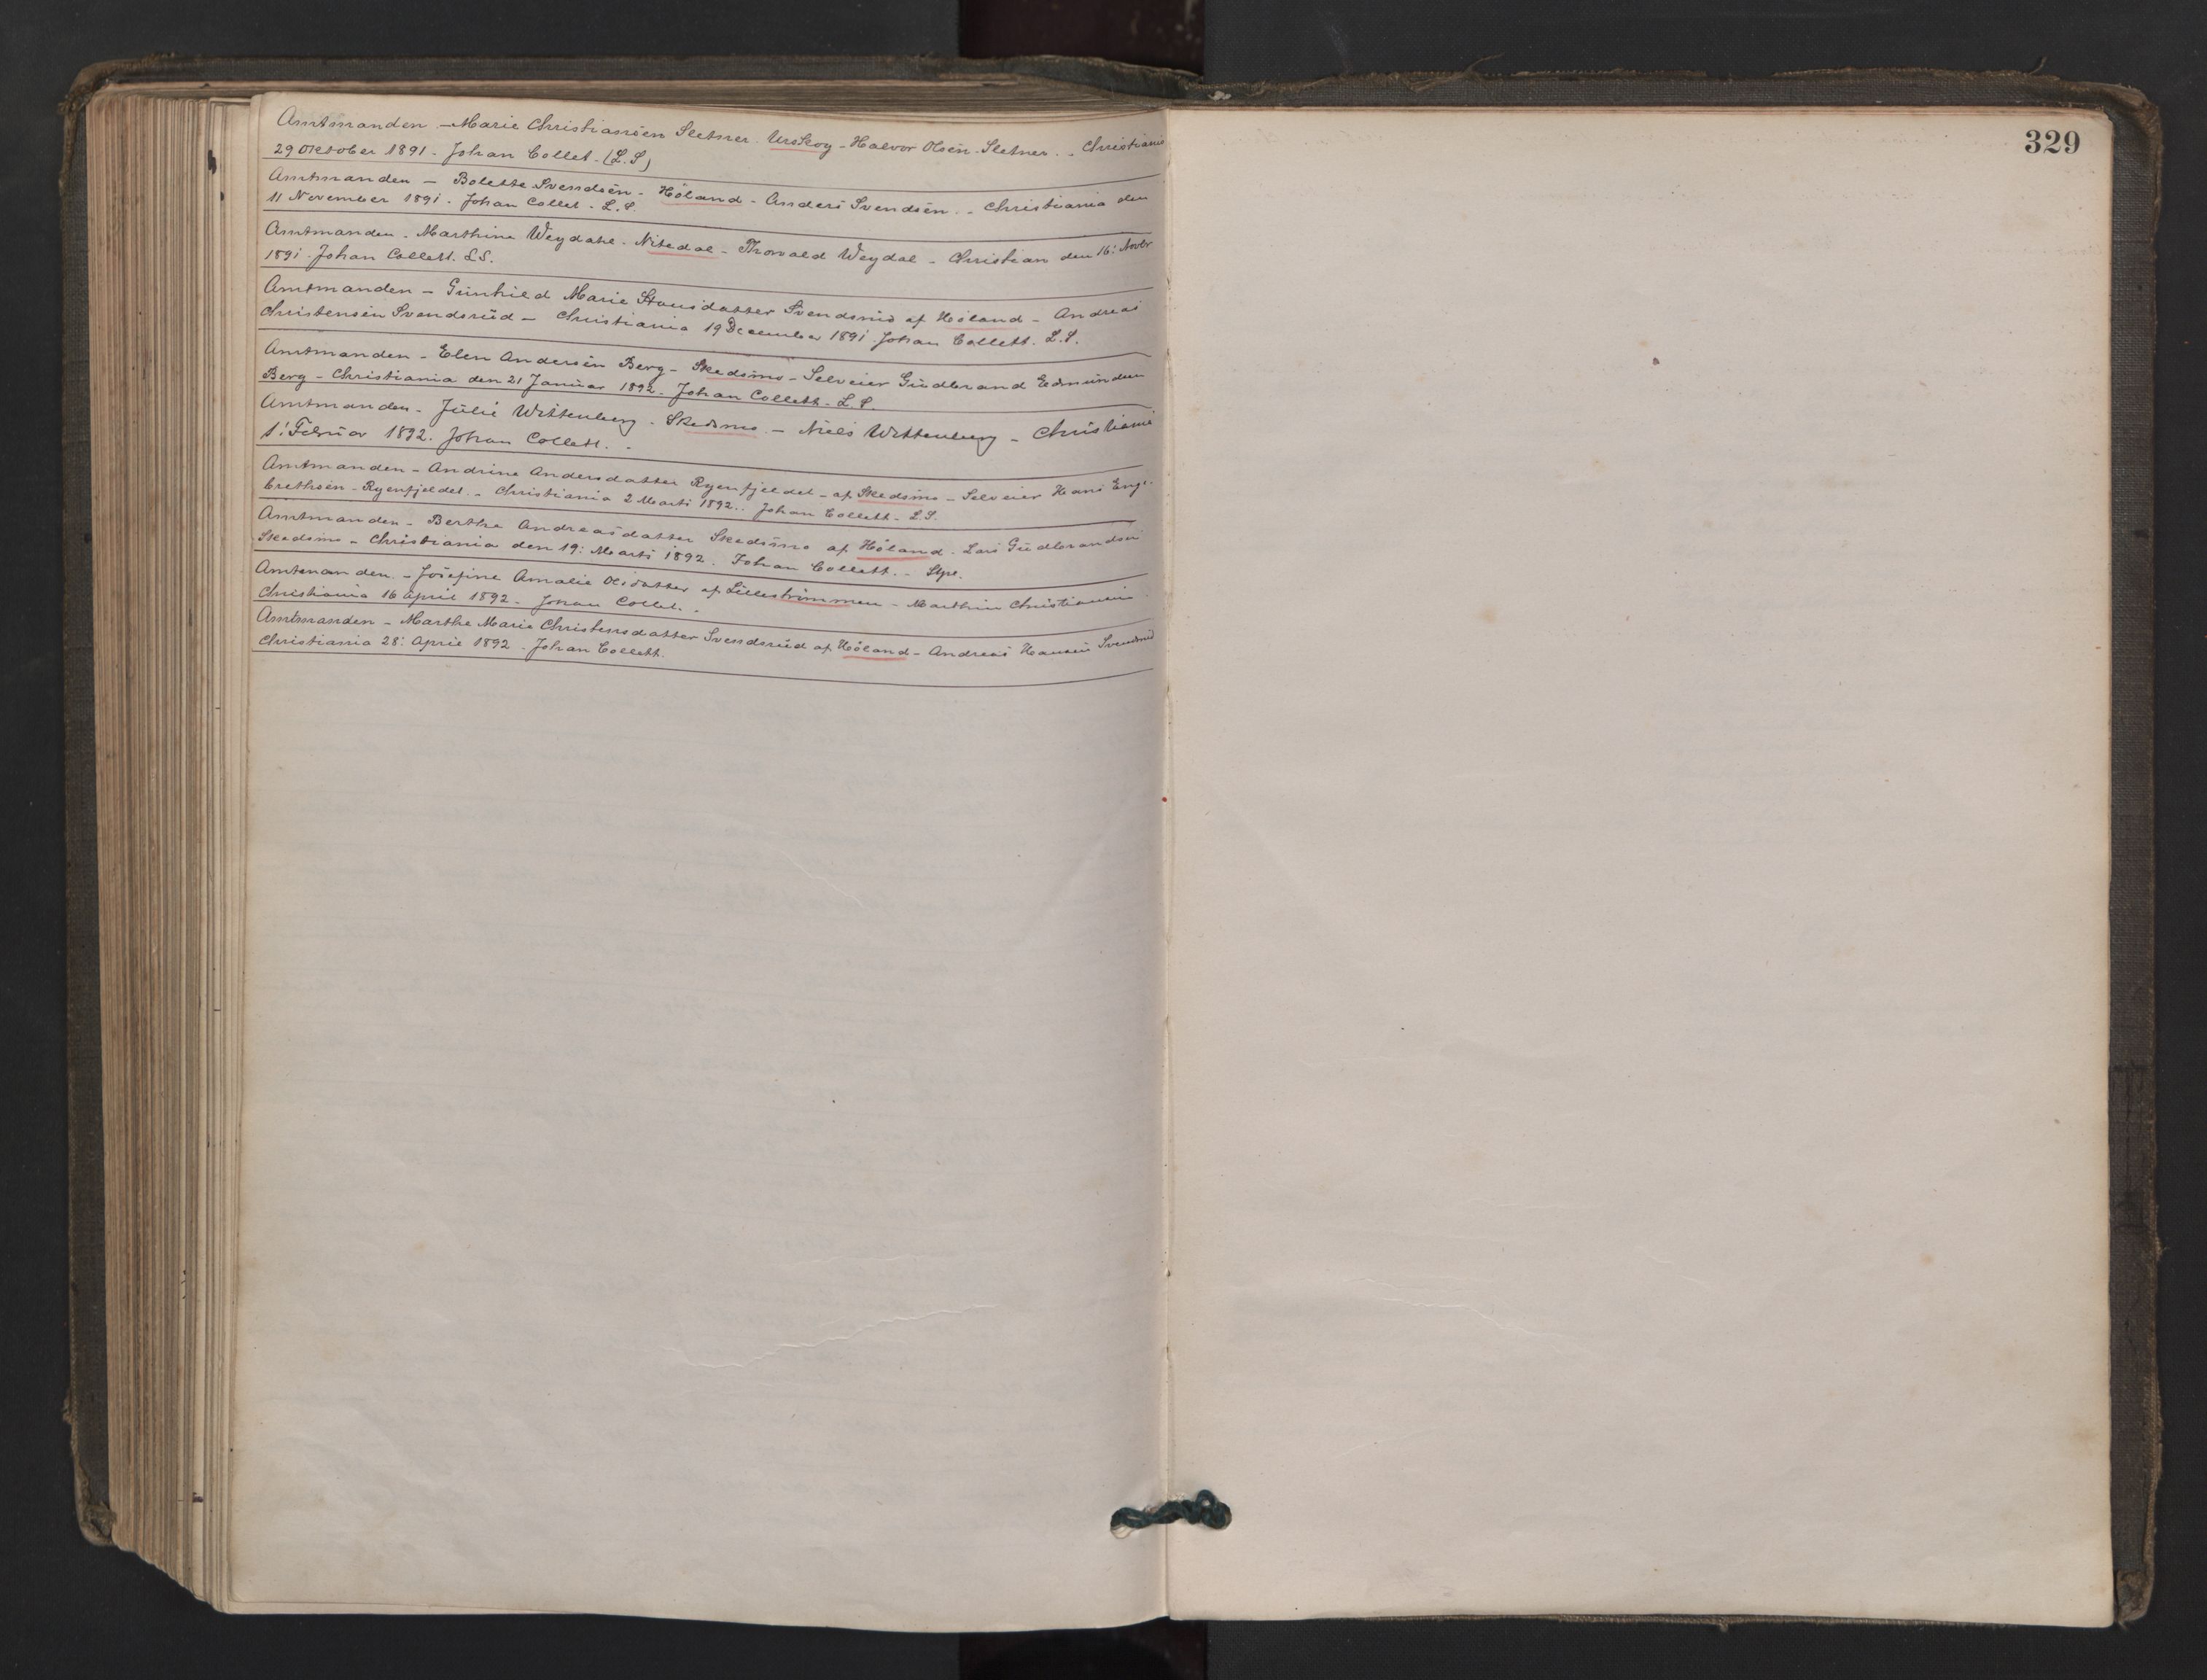 Amtmanden - Marie Christiansen Sletner. Urskog - Halvor Olsen Sletner. - Christiania
29 Oktober 1891. Johan Collet. (L.S)
Amtmanden - Bolette Svendsen - Höland - Anders Svendsen. - Christiania den
11 November 1891. Johan Collet. L.S.
Amtmanden. Marthine Weydahl. Nitedal - Thorvald Weydal - Christian den 16: Novbr
1891. Johan Collett. L.S.
Amtmanden - Gunhild Marie Svendsrud af Höland - Andreas
Christensen Svendsrud - Christiania 19 December 1891. Johan Collett. L.S.
Amtmanden - Elen Andersen Berg - Skedsmo - Selveier Gudbrand Edmundsen
Berg - Christiania den 21 Januar 1892. Johan Collett - L.S.
Amtmanden - Julie Wittenberg. Skedsmo - Niels Wittenberg - Christiania
1: Februar 1892. Johan Collett.
Amtmanden - Andrine Andersdatter Ryenfjeldet - af Skedsmo - Selveier Hans Enge-
brethsen - Ryenfjeldet. - Christiania 2 Marts 1892. Johan Collett - L.S.
Amtmanden - Berthe Andreasdatter Skedsmo af Höland. Lars Gudbrandsen
Skedsmo - Christiania den 19: Marts 1892. Johan Collett. -
Amtmanden. - Josefine Amalie Olsdatter af Lilleströmmen - Marthin Christiansen
Christiania 16 April 1892 - Johan Collet.
Amtmanden - Marthe Marie Christensdatter Svendsrud af Höland - Andreas Hansen Svendsrud
Christiania 28: April 1892. Johan Collett.
329